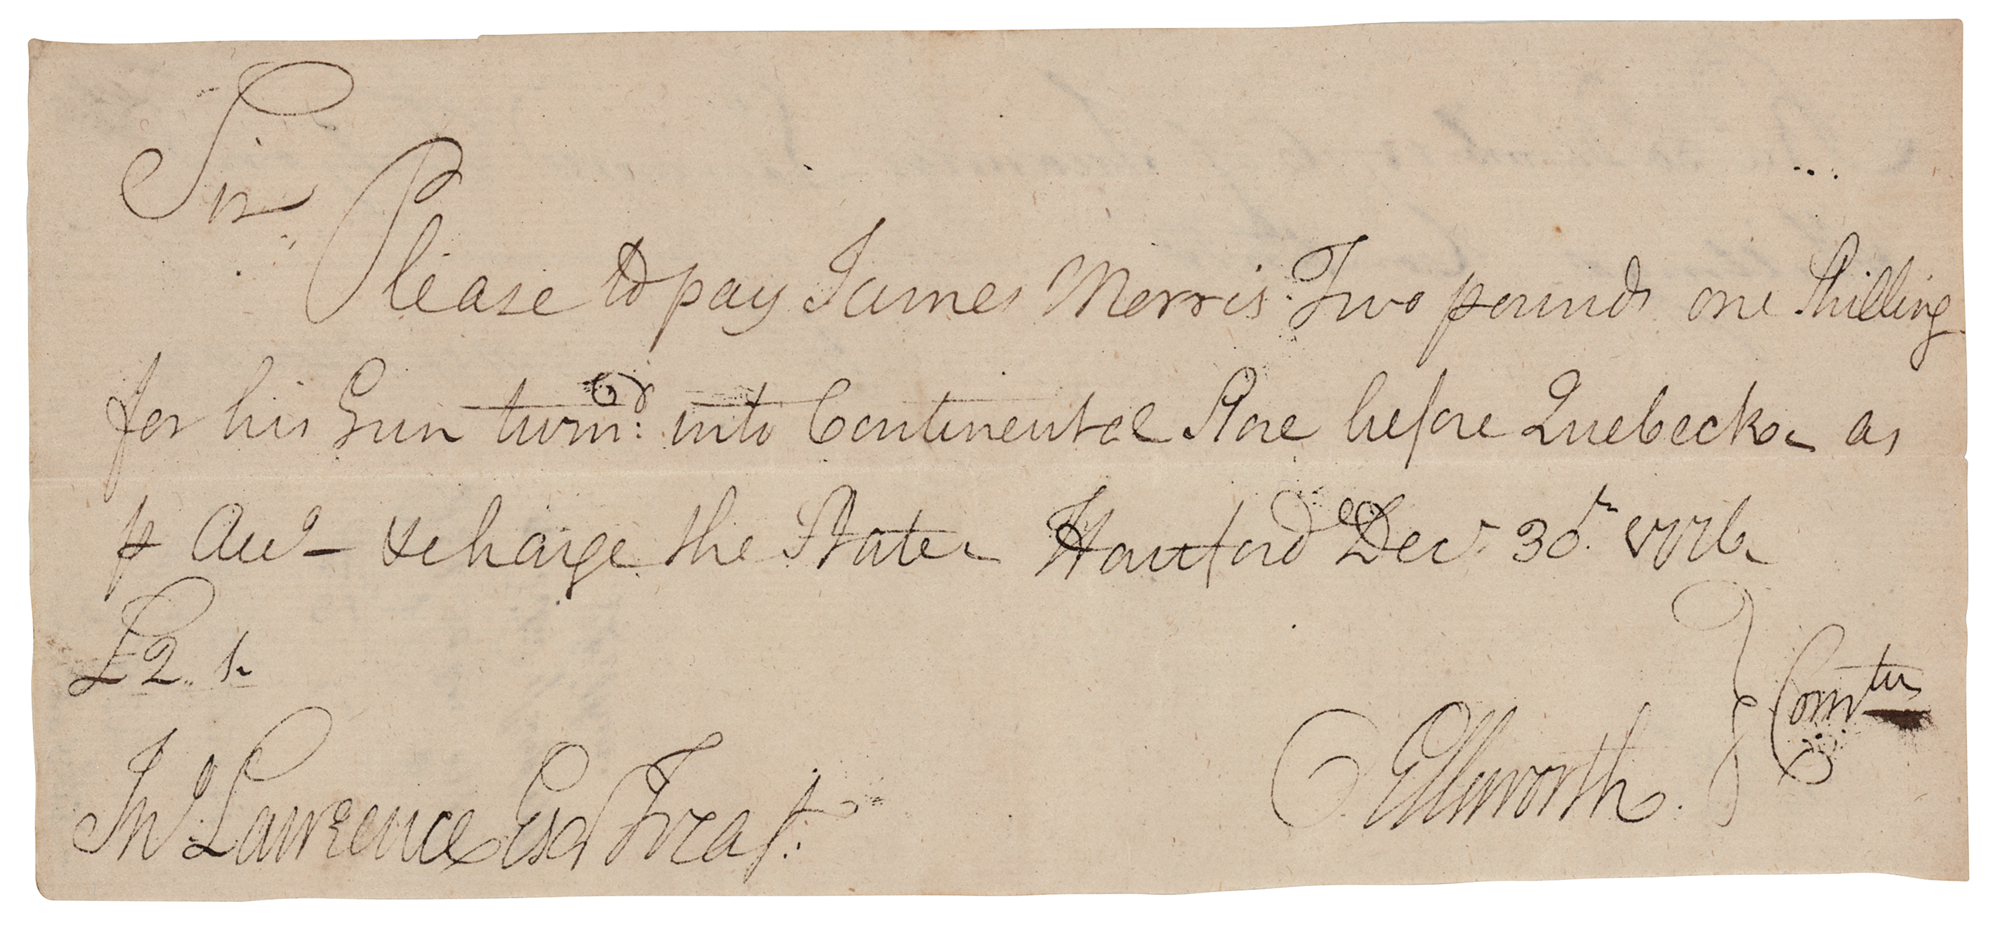 Sir
Please to pay James Morris Two pounds one Shilling
for his Gun turnd. into Continental Store before Quebeck as
p Acco & charge the State Hartford Decr. 30th. 1776
£2..1
Jno Lawrence Esqr Treasr.
O Ellsworth } Comtee